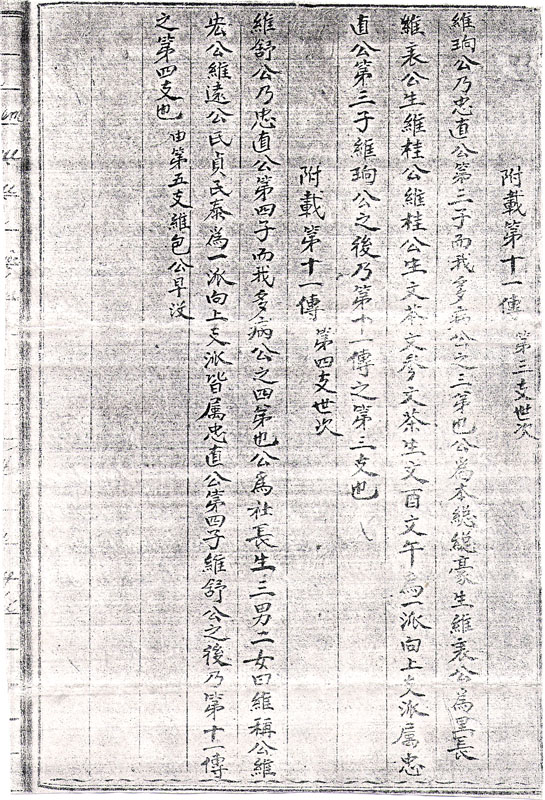 附載第十一傳 第三支世次
維珣公乃忠直公第三子而我多病公之三弟也公為本総総豪生維表公為里長
維表公生維桂公維桂公生文茶文參文茶生文百文午為一派向上支派属忠
直公第三子維珣公之後乃第十一傳之第三支也
附載第十一傳 第四支世次
維舒公乃忠直公第四子而我多病公之四第也公為社長生三男二女曰維稱公維
宏公維遠公氏貞氏泰為一派向上支派皆属忠直公第四子維舒公之後乃第十一傳
之第四支也 由第五支維包公早没